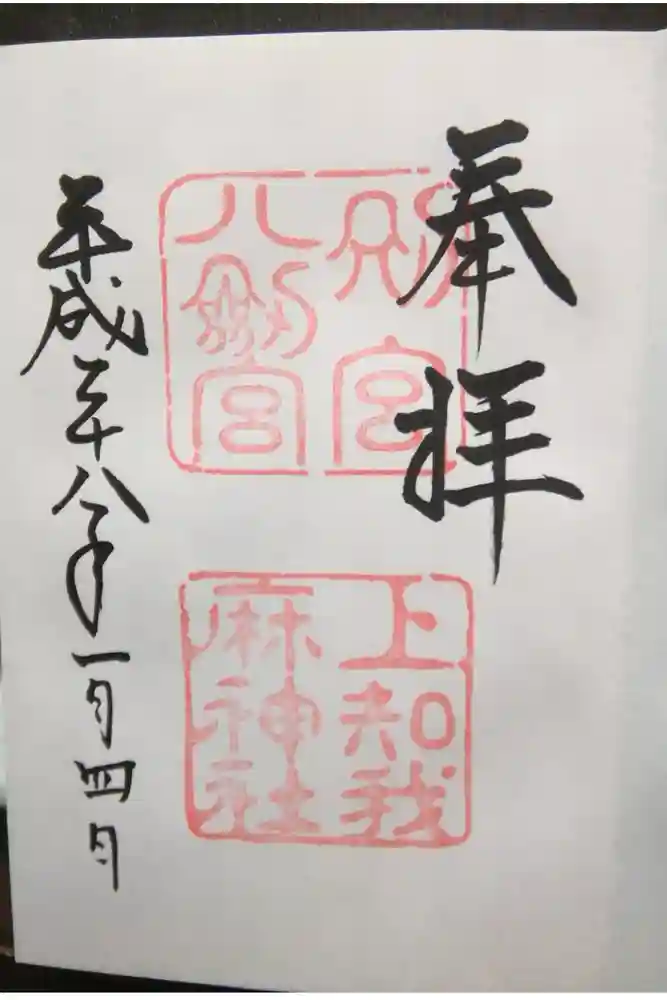 奉拝
別宮
八剱宮
上知我
麻神社
平成三十八年一月四日